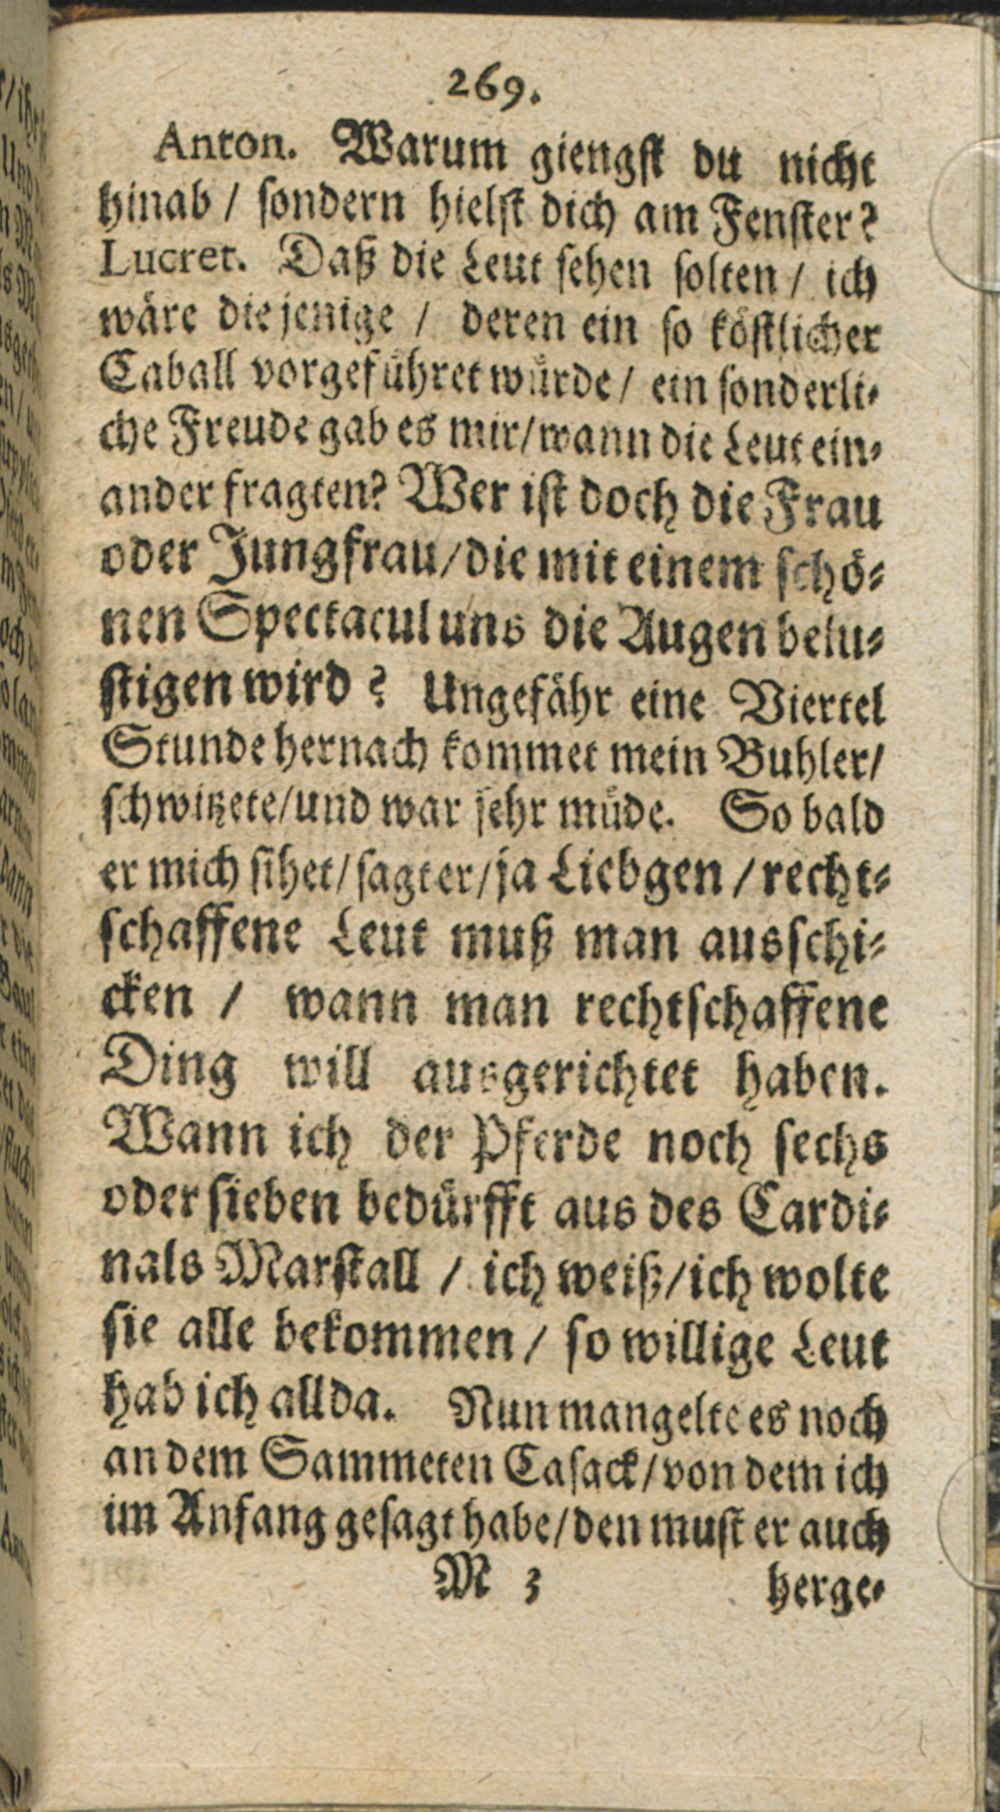 269.
Anton. Warum giengst du nicht
hinab / sondern hielst dich am Fenster?
Lucret. Daß die Leut sehen solten / ich
wäre die jenige / deren ein so köstlicher
Caball vorgeführet würde / ein sonderli-
che Freude gab es mir/wann die Leut ein-
ander fragten? Wer ist doch die Frau
oder Jungfrau/die mit einem schö-
nen Spectacul uns die Augen belu-
stigen wird? Ungefähr eine Viertel
Stunde hernach kommet mein Buhler/
schwitzete/und war sehr müde. So bald
er mich sihet/sagt er/ja Liebgen/recht-
schaffene Leut muß man ausschi-
cken / wann man rechtschaffene
Ding will ausgerichtet haben.
Wann ich der Pferde noch sechs
oder sieben bedürfft aus des Cardi-
nals Marstall / ich weiß/ich wolte
sie alle bekommen / so willige Leut
hab ich allda. Nun mangelte es noch
an dem Sammeten Casack/von dem ich
im Anfang gesagt habe/den must er auch
M 3 herge-